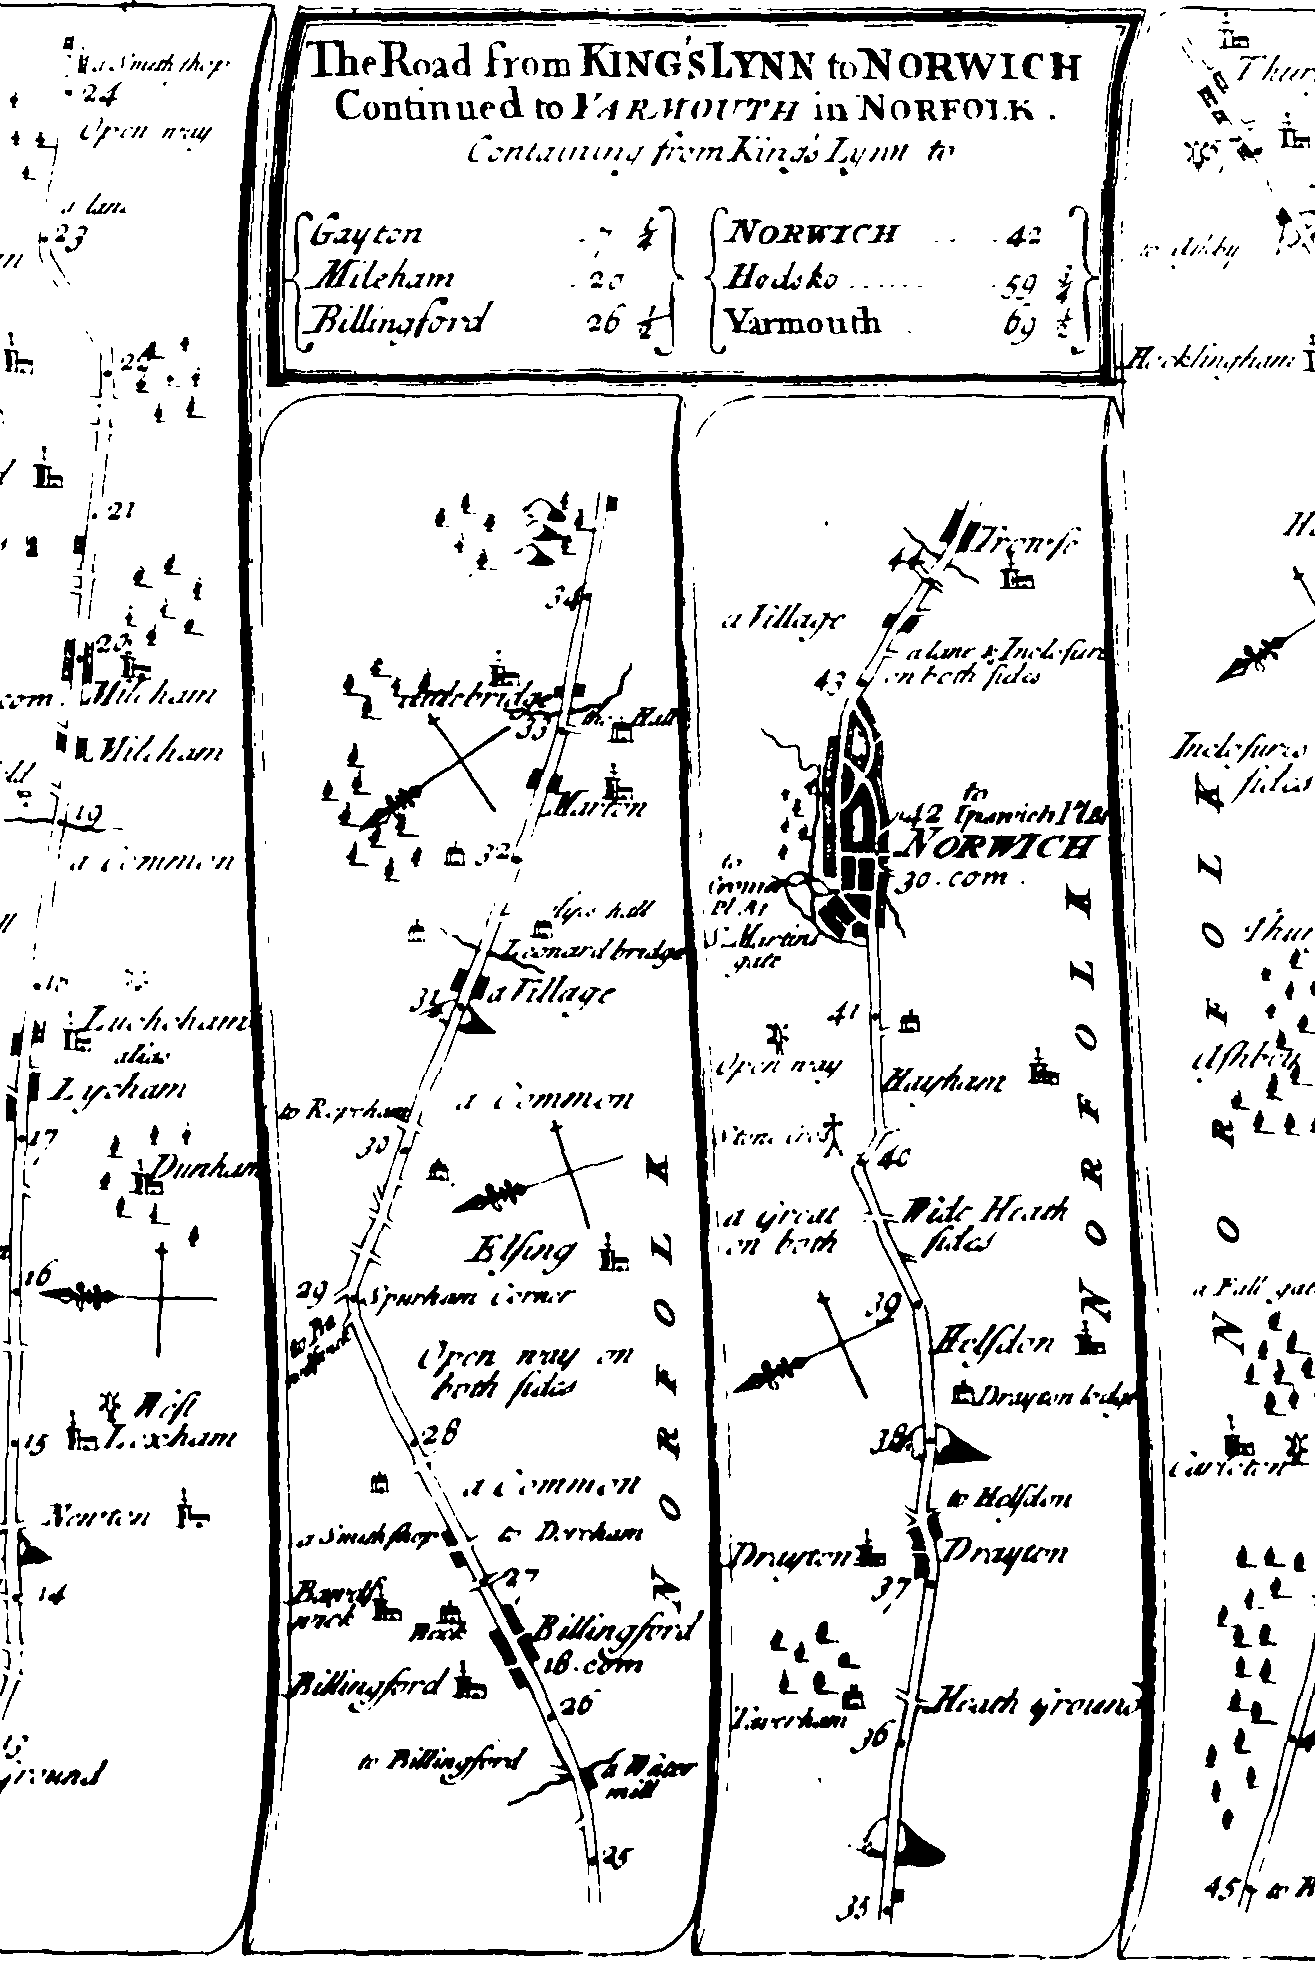 The Road from KING'S LYNN to NORWICH
Continued to YARMOUTH in NORFOLK.
Containing from King's Lynn to
Gayton 7 1/4
Mileham 20
Billingford 26 1/2
NORWICH 42
Hodsko 59 3/4
Yarmouth 69 1/2
a Smith shop
24
Open way
a lane
23
22
21
20
Mileham
Mileham
19
a Common
18
Lucheham
alias
Lycham
17
Dunham
16
West
15 Lexham
Newton
14
13
ground
34
33
the Hall
Marton
32
Leonard bridge
31
a Village
to Repeham
a Common
30
Elsing
29
Spurham Corner
Open way on
both sides
28
a Common
a Smith shop
to Dereham
27
Billingford
18. com
Billingford
26
to Billingford
a Water
mill
25
NORFOLK
44
Trowse
a Village
a lane & Inclosure
on both sides
43
42
to
Ipswich
NORWICH
30. com.
to
St. Martins
gate
41
Open way
Hayham
Stone cross
40
a great
Wide Heath
on both
sides
39
Helsdon
Drayton lodge
38
to Helsdon
Drayton
Drayton
37
Taverham
Heath ground
36
35
NORFOLK
Thur
to Ashby
Hecklingham
Inclosures
sides
Thur
Ashboy
a Fall gate
Carleton
45
NORFOLK